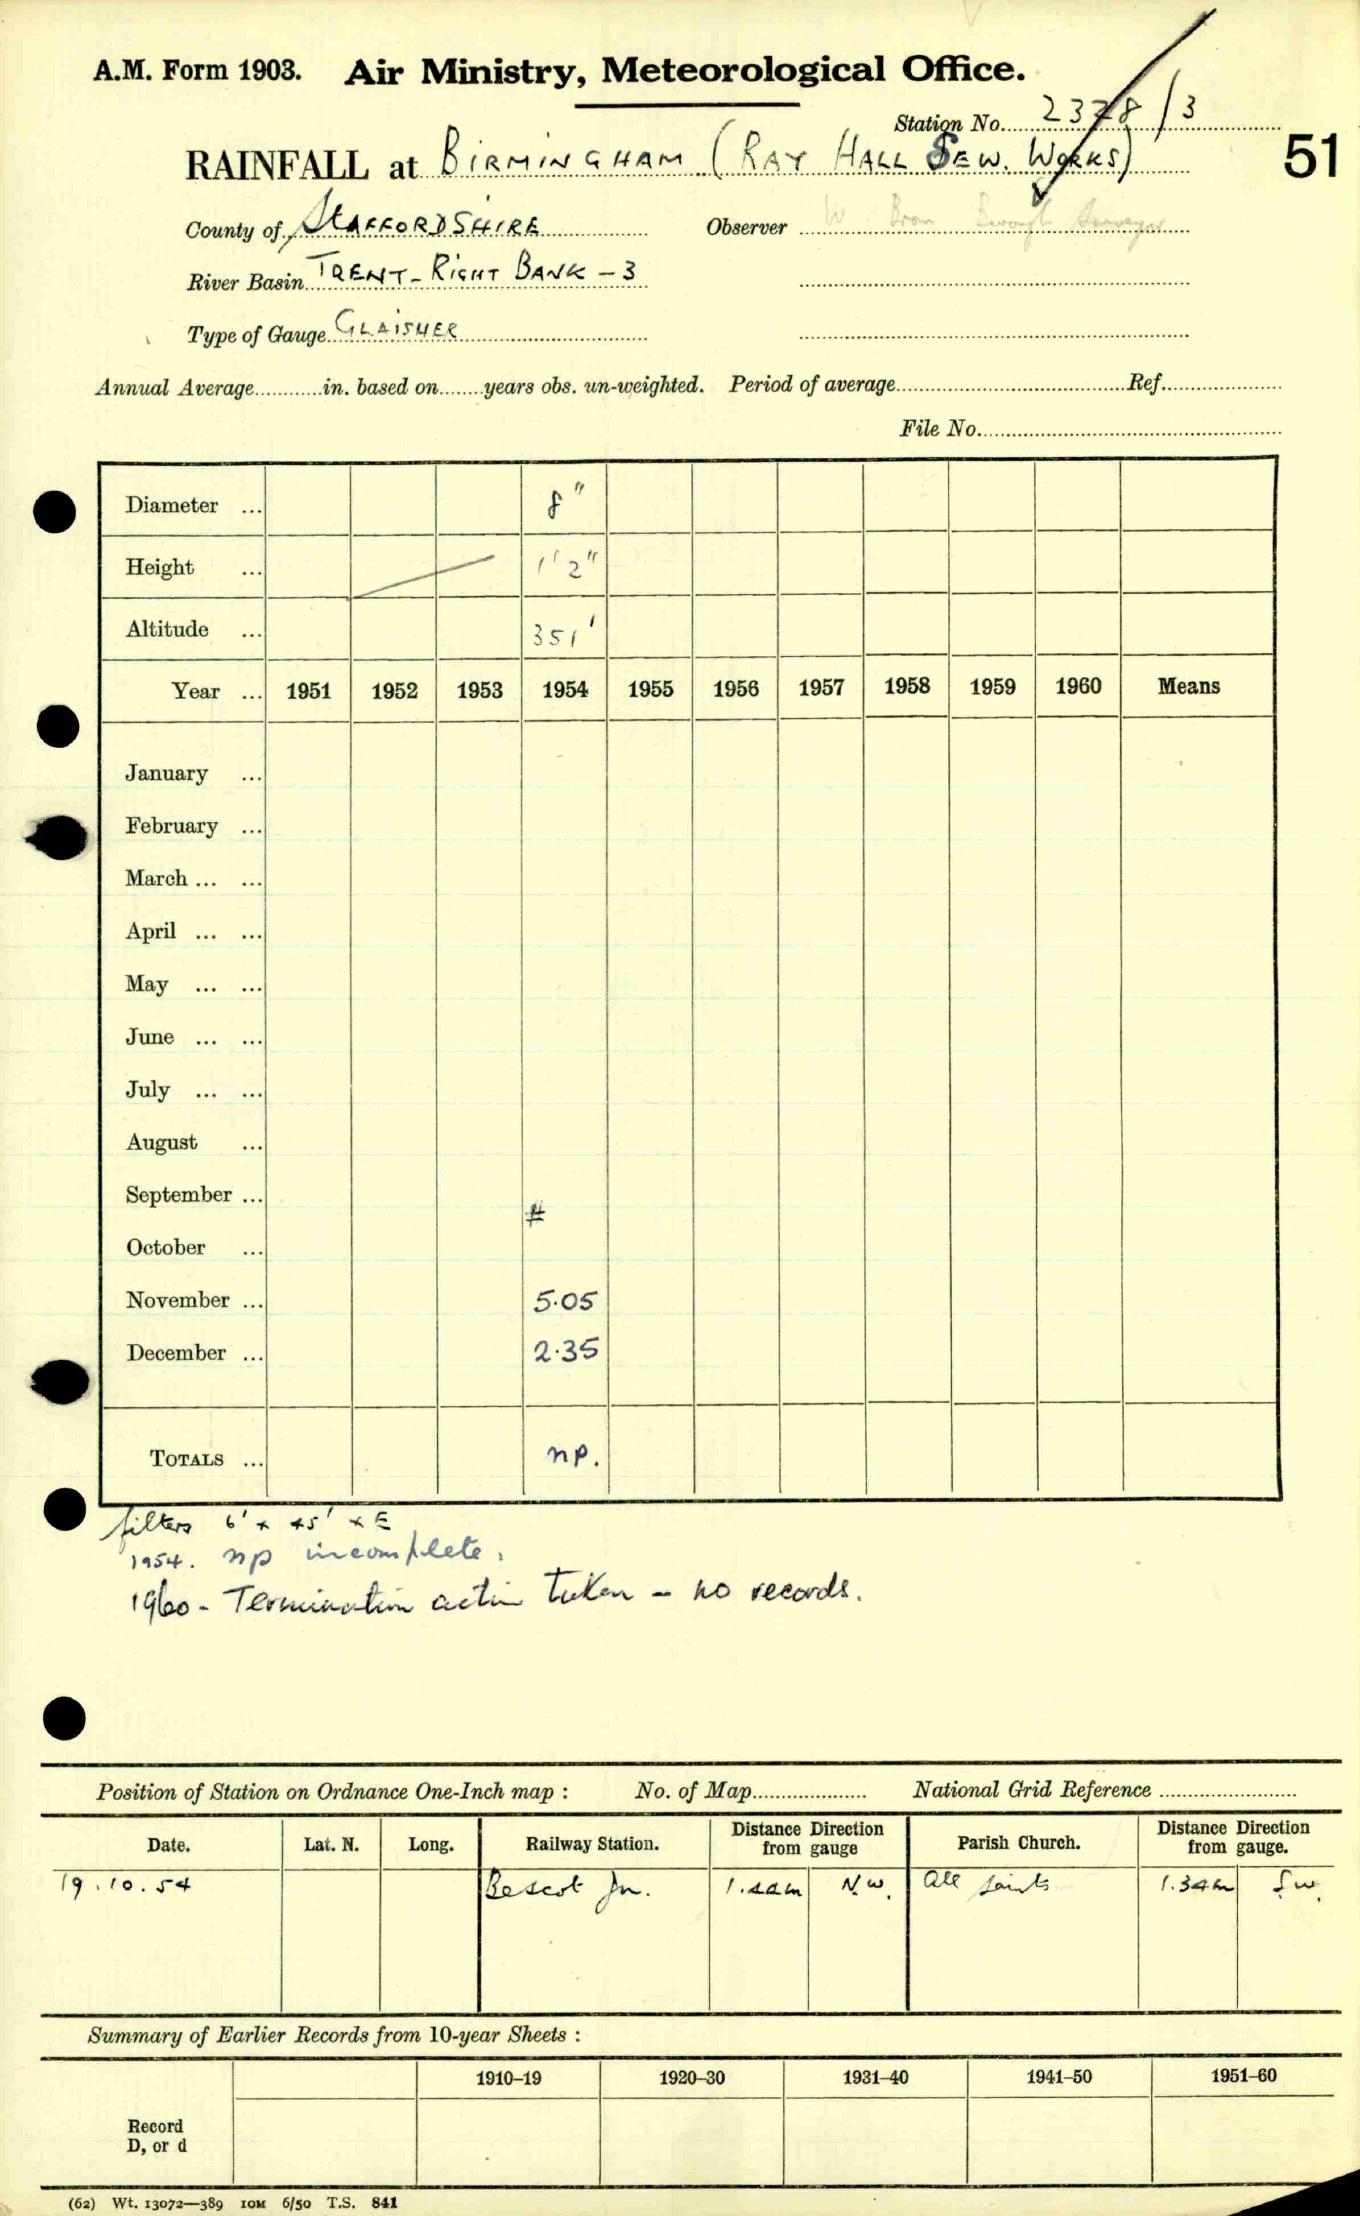 A.M. Form 1903. Air Ministry, Meteorological Office.
Station No. 2378/3
RAINFALL at BIRMINGHAM (RAY HALL SEW. WORKS) 51
County of STAFFORDSHIRE Observer W. Brom Borough Surveyor
River Basin TRENT - RIGHT BANK - 3
Type of Gauge GLAISHER
Annual Average............in. based on........years obs. un-weighted. Period of average........ Ref.........
File No.........
Diameter ... 8"
Height ... 1' 2"
Altitude ... 351'
Year ... 1951 1952 1953 1954 1955 1956 1957 1958 1959 1960 Means
January ...
February ...
March ... ...
April ... ...
May ... ...
June ... ...
July ... ...
August ...
September ...
#
October ...
November ... 5·05
December ... 2·35
TOTALS ... np.
filters 6' x 45' x E
1954. np incomplete.
1960 - Termination action taken - no records.
Position of Station on Ordnance One-Inch map : No. of Map........ National Grid Reference ........
Date. Lat. N. Long. Railway Station. Distance Direction from gauge Parish Church. Distance Direction from gauge.
19.10.54 Bescot Jn. N.W. All Saints S.W.
Summary of Earlier Records from 10-year Sheets :
1910–19 1920–30 1931–40 1941–50 1951–60
Record
D, or d
(62) Wt. 13072—389 10M 6/50 T.S. 841